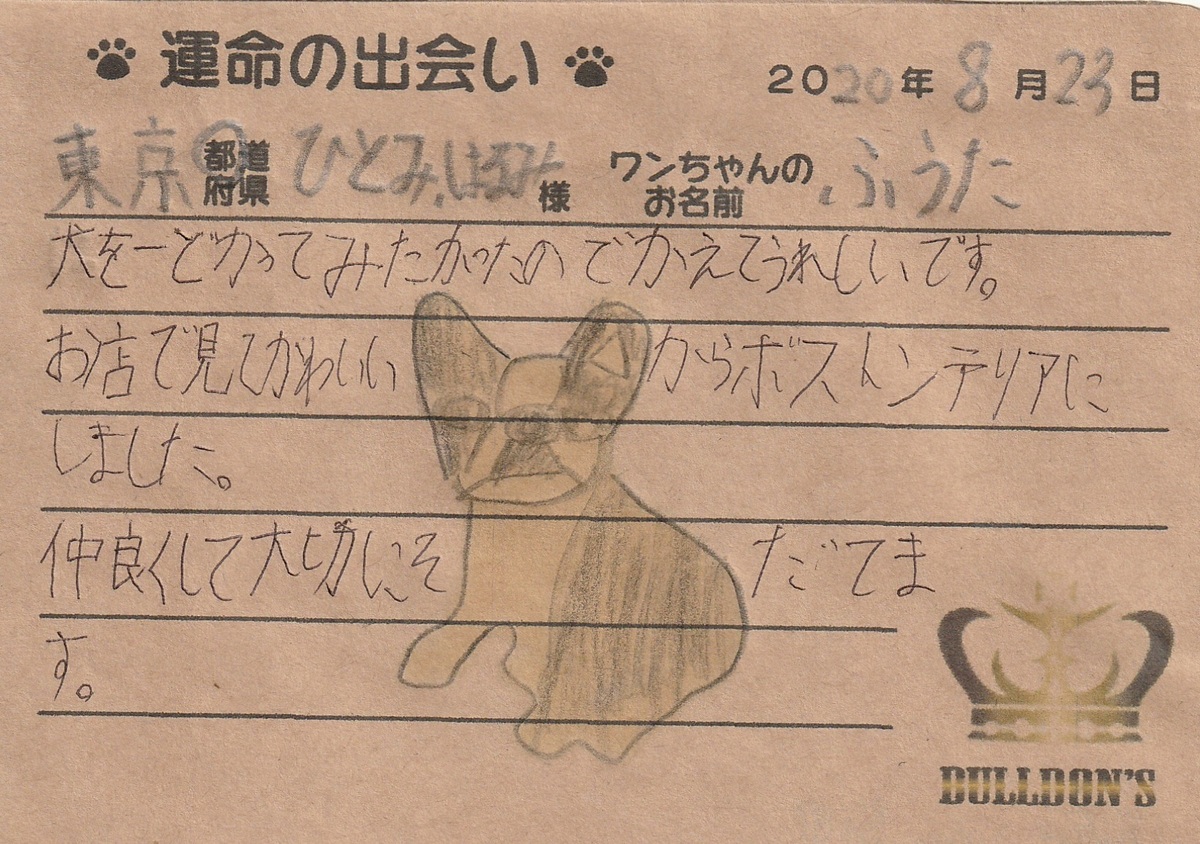 運命の出会い
2020年8月23日
東京都道府県 ひとみ、はるみ様 ワンちゃんのお名前 ふうた
犬を一どかってみたかったのでかえてうれしいです。
お店で見てかわいいからボストンテリアに
しました。
仲良くして大切にそだてま
す。
BULLDON'S